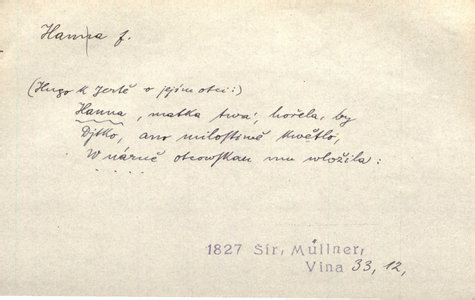 Hanna f.
(Hugo k Jertě o jejím otci:)
Hanna, matka twá, hořela, by
Djtko, ano milostině kwětlo,
W nárně otcowskau mu wložila:
. . . . .
1827 Sir, Müllner,
Vina 33, 12,